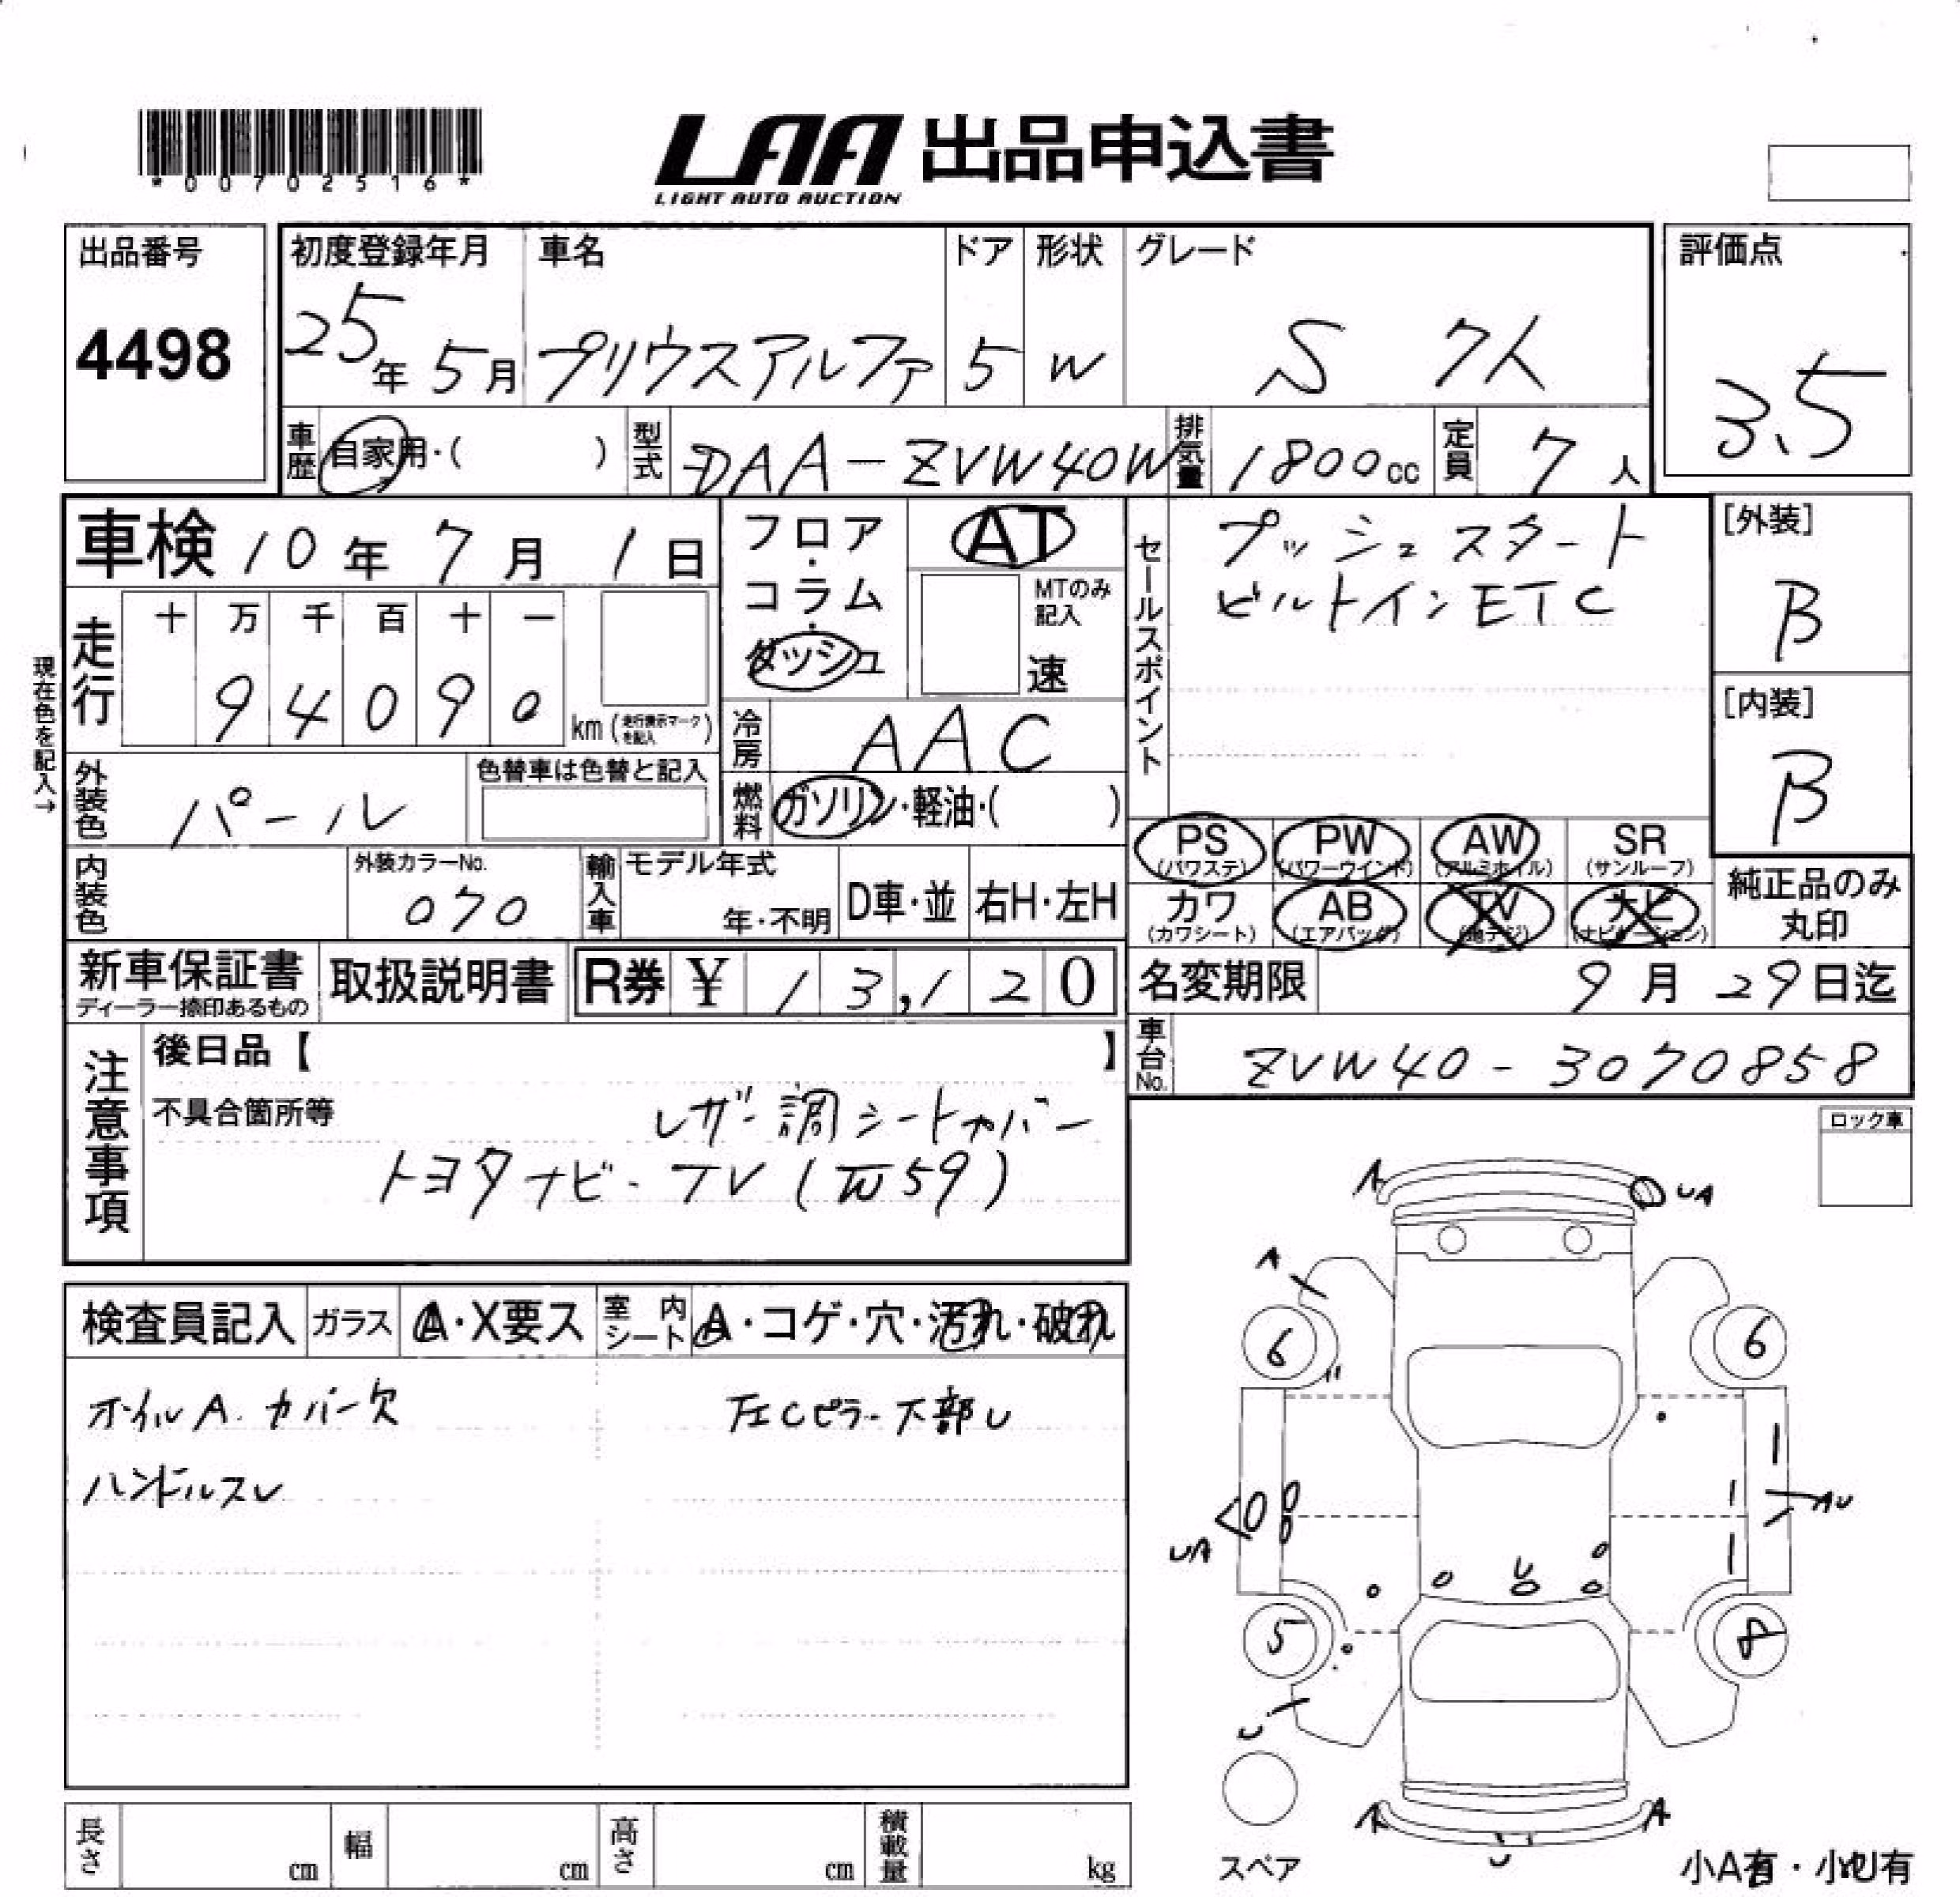 *00702516*
LAA 出品申込書
LIGHT AUTO AUCTION
出品番号
4498
初度登録年月
25年 5月
車名
プリウスアルファ
ドア
5
形状
W
グレード
S 7人
評価点
3.5
車歴 自家用・( )
型式 DAA-ZVW40W
排気量 1800cc
定員 7人
車検 10年 7月 1日
フロア・コラム・ダッシュ
AT
MTのみ記入
速
セールスポイント
プッシュスタート
ビルトインETC
[外装]
B
[内装]
B
現在色を記入→
走行
十 万 千 百 十 一
9 4 0 9 0
km (走行表示マークを記入)
冷房 AAC
外装色 パール
色替車は色替と記入
燃料 ガソリン・軽油・( )
内装色
外装カラーNo.
070
輸入車
モデル年式
年・不明
D車・並
右H・左H
PS (パワステ)
PW (パワーウインド)
AW (アルミホイル)
SR (サンルーフ)
カワ (カワシート)
AB (エアバッグ)
TV (地デジ)
ナビ (ナビゲーション)
純正品のみ
丸印
新車保証書
ディーラー捺印あるもの
取扱説明書
R券 ¥ 13,120
名変期限 9月 29日迄
車台No. ZVW40-3070858
注意事項
後日品【 】
不具合箇所等
レザー調シートカバー
トヨタナビ・TV (W59)
ロック車
検査員記入
ガラス A・X要ス
室内シート A・コゲ・穴・汚れ・破れ
オイルA. カバー欠
左Cピラー下部U
ハンドルスレ
A
UA
A
6
6
AU
UA
U
5
8
U
A
A
U
スペア
小A有・小U有
長さ cm
幅 cm
高さ cm
積載量 kg